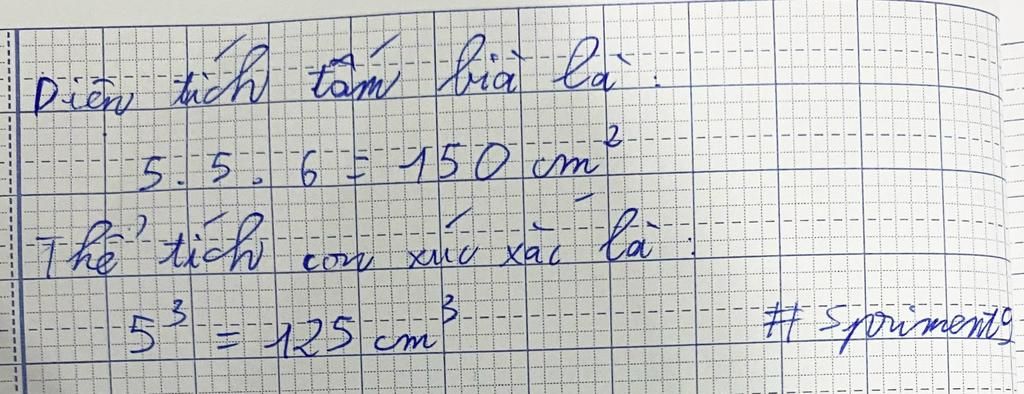 Diện tích tấm bìa là:
5.5.6 = 150 cm²
Thể tích con xúc xắc là:
5³ = 125 cm³
# Spriments